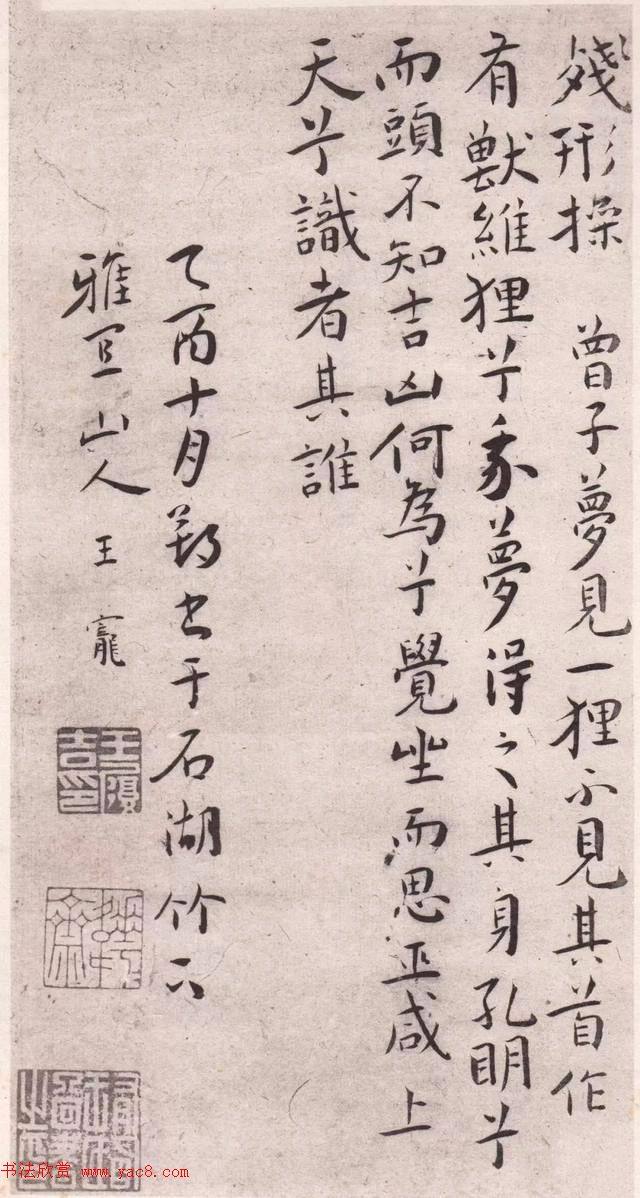 殘形操 曾子夢見一狸不見其首作
有獸維狸兮我夢得之其身孔明兮
而頭不知吉凶何為兮覺坐而思巫咸上
天兮識者其誰
乙酉十月朔書于石湖竹下
雅宜山人 王寵
书法欣赏 www.yac8.com